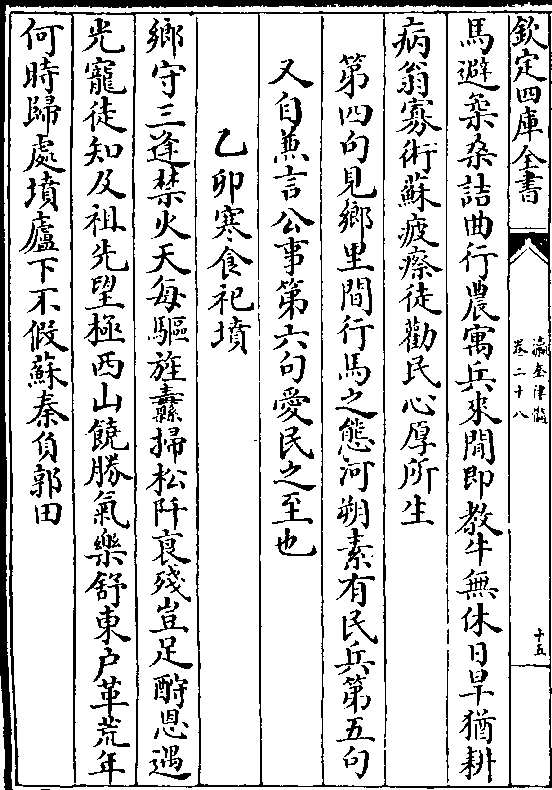 欽定四庫全書
瀛奎律髓
卷二十八
十五
馬避桑桑詰曲行農寓兵來閒即教牛無休日旱猶耕
病翁寡術蘇疲瘵徒勸民心厚所生
第四句見鄉里間行馬之態河朔素有民兵第五句
又自兼言公事第六句愛民之至也
乙卯寒食祀墳
鄉守三逢禁火天每驅旌纛掃松阡裒殘豈足酧恩遇
光寵徒知及祖先望極西山饒勝氣樂舒東户革荒年
何時歸處墳廬下不假蘇秦負郭田